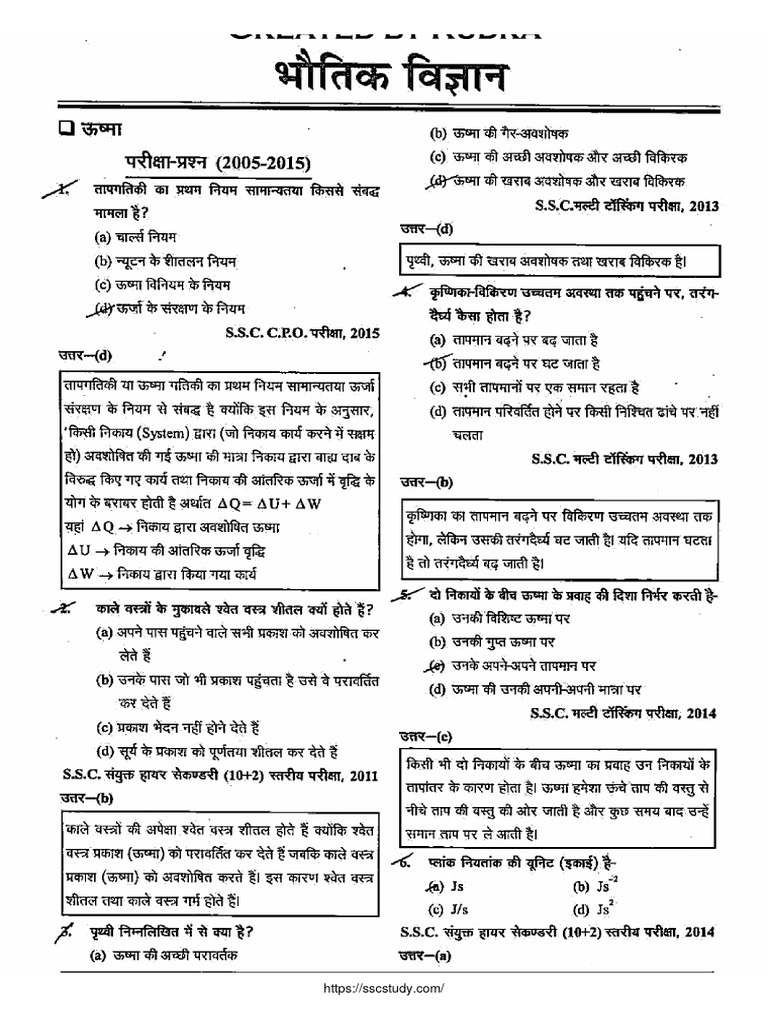 CREATED BY RUDRA
भौतिक विज्ञान
❑ ऊष्मा
परीक्षा-प्रश्न (2005-2015)
1. तापगतिकी का प्रथम नियम सामान्यतया किससे संबद्ध
मामला है?
(a) चार्ल्स नियम
(b) न्यूटन के शीतलन नियम
(c) ऊष्मा विनियम के नियम
(d) ऊर्जा के संरक्षण के नियम
S.S.C. C.P.O. परीक्षा, 2015
उत्तर–(d)
तापगतिकी या ऊष्मा गतिकी का प्रथम नियम सामान्यतया ऊर्जा
संरक्षण के नियम से संबद्ध है क्योंकि इस नियम के अनुसार,
'किसी निकाय (System) द्वारा (जो निकाय कार्य करने में सक्षम
हो) अवशोषित की गई ऊष्मा की मात्रा निकाय द्वारा बाह्य दाब के
विरुद्ध किए गए कार्य तथा निकाय की आंतरिक ऊर्जा में वृद्धि के
योग के बराबर होती है अर्थात ΔQ = ΔU + ΔW
यहां ΔQ → निकाय द्वारा अवशोषित ऊष्मा
ΔU → निकाय की आंतरिक ऊर्जा वृद्धि
ΔW → निकाय द्वारा किया गया कार्य
2. काले वस्त्रों के मुकाबले श्वेत वस्त्र शीतल क्यों होते हैं?
(a) अपने पास पहुंचने वाले सभी प्रकाश को अवशोषित कर
लेते हैं
(b) उनके पास जो भी प्रकाश पहुंचता है उसे वे परावर्तित
कर देते हैं
(c) प्रकाश भेदन नहीं होने देते हैं
(d) सूर्य के प्रकाश को पूर्णतया शीतल कर देते हैं
S.S.C. संयुक्त हायर सेकण्डरी (10+2) स्तरीय परीक्षा, 2011
उत्तर–(b)
काले वस्त्रों की अपेक्षा श्वेत वस्त्र शीतल होते हैं क्योंकि श्वेत
वस्त्र प्रकाश (ऊष्मा) को परावर्तित कर देते हैं जबकि काले वस्त्र
प्रकाश (ऊष्मा) को अवशोषित करते हैं। इस कारण श्वेत वस्त्र
शीतल तथा काले वस्त्र गर्म होते हैं।
3. पृथ्वी निम्नलिखित में से क्या है?
(a) ऊष्मा की अच्छी परावर्तक
(b) ऊष्मा की गैर-अवशोषक
(c) ऊष्मा की अच्छी अवशोषक और अच्छी विकिरक
(d) ऊष्मा की खराब अवशोषक और खराब विकिरक
S.S.C.मल्टी टॉस्किंग परीक्षा, 2013
उत्तर–(d)
पृथ्वी, ऊष्मा की खराब अवशोषक तथा खराब विकिरक है।
4. कृष्णिका-विकिरण उच्चतम अवस्था तक पहुंचने पर, तरंग-
दैर्घ्य कैसा होता है?
(a) तापमान बढ़ने पर बढ़ जाता है
(b) तापमान बढ़ने पर घट जाता है
(c) सभी तापमानों पर एक समान रहता है
(d) तापमान परिवर्तित होने पर किसी निश्चित ढांचे पर नहीं
चलता
S.S.C. मल्टी टॉस्किंग परीक्षा, 2013
उत्तर–(b)
कृष्णिका का तापमान बढ़ने पर विकिरण उच्चतम अवस्था तक
होगा, लेकिन उसकी तरंगदैर्घ्य घट जाती है। यदि तापमान घटता
है तो तरंगदैर्घ्य बढ़ जाती है।
5. दो निकायों के बीच ऊष्मा के प्रवाह की दिशा निर्भर करती है-
(a) उनकी विशिष्ट ऊष्मा पर
(b) उनकी गुप्त ऊष्मा पर
(c) उनके अपने-अपने तापमान पर
(d) ऊष्मा की उनकी अपनी-अपनी मात्रा पर
S.S.C. मल्टी टॉस्किंग परीक्षा, 2014
उत्तर–(c)
किसी भी दो निकायों के बीच ऊष्मा का प्रवाह उन निकायों के
तापांतर के कारण होता है। ऊष्मा हमेशा ऊंचे ताप की वस्तु से
नीचे ताप की वस्तु की ओर जाती है और कुछ समय बाद उन्हें
समान ताप पर ले आती है।
6. प्लांक नियतांक की यूनिट (इकाई) है-
(a) Js (b) Js⁻²
(c) J/s (d) Js²
S.S.C. संयुक्त हायर सेकण्डरी (10+2) स्तरीय परीक्षा, 2014
उत्तर–(a)
https://sscstudy.com/